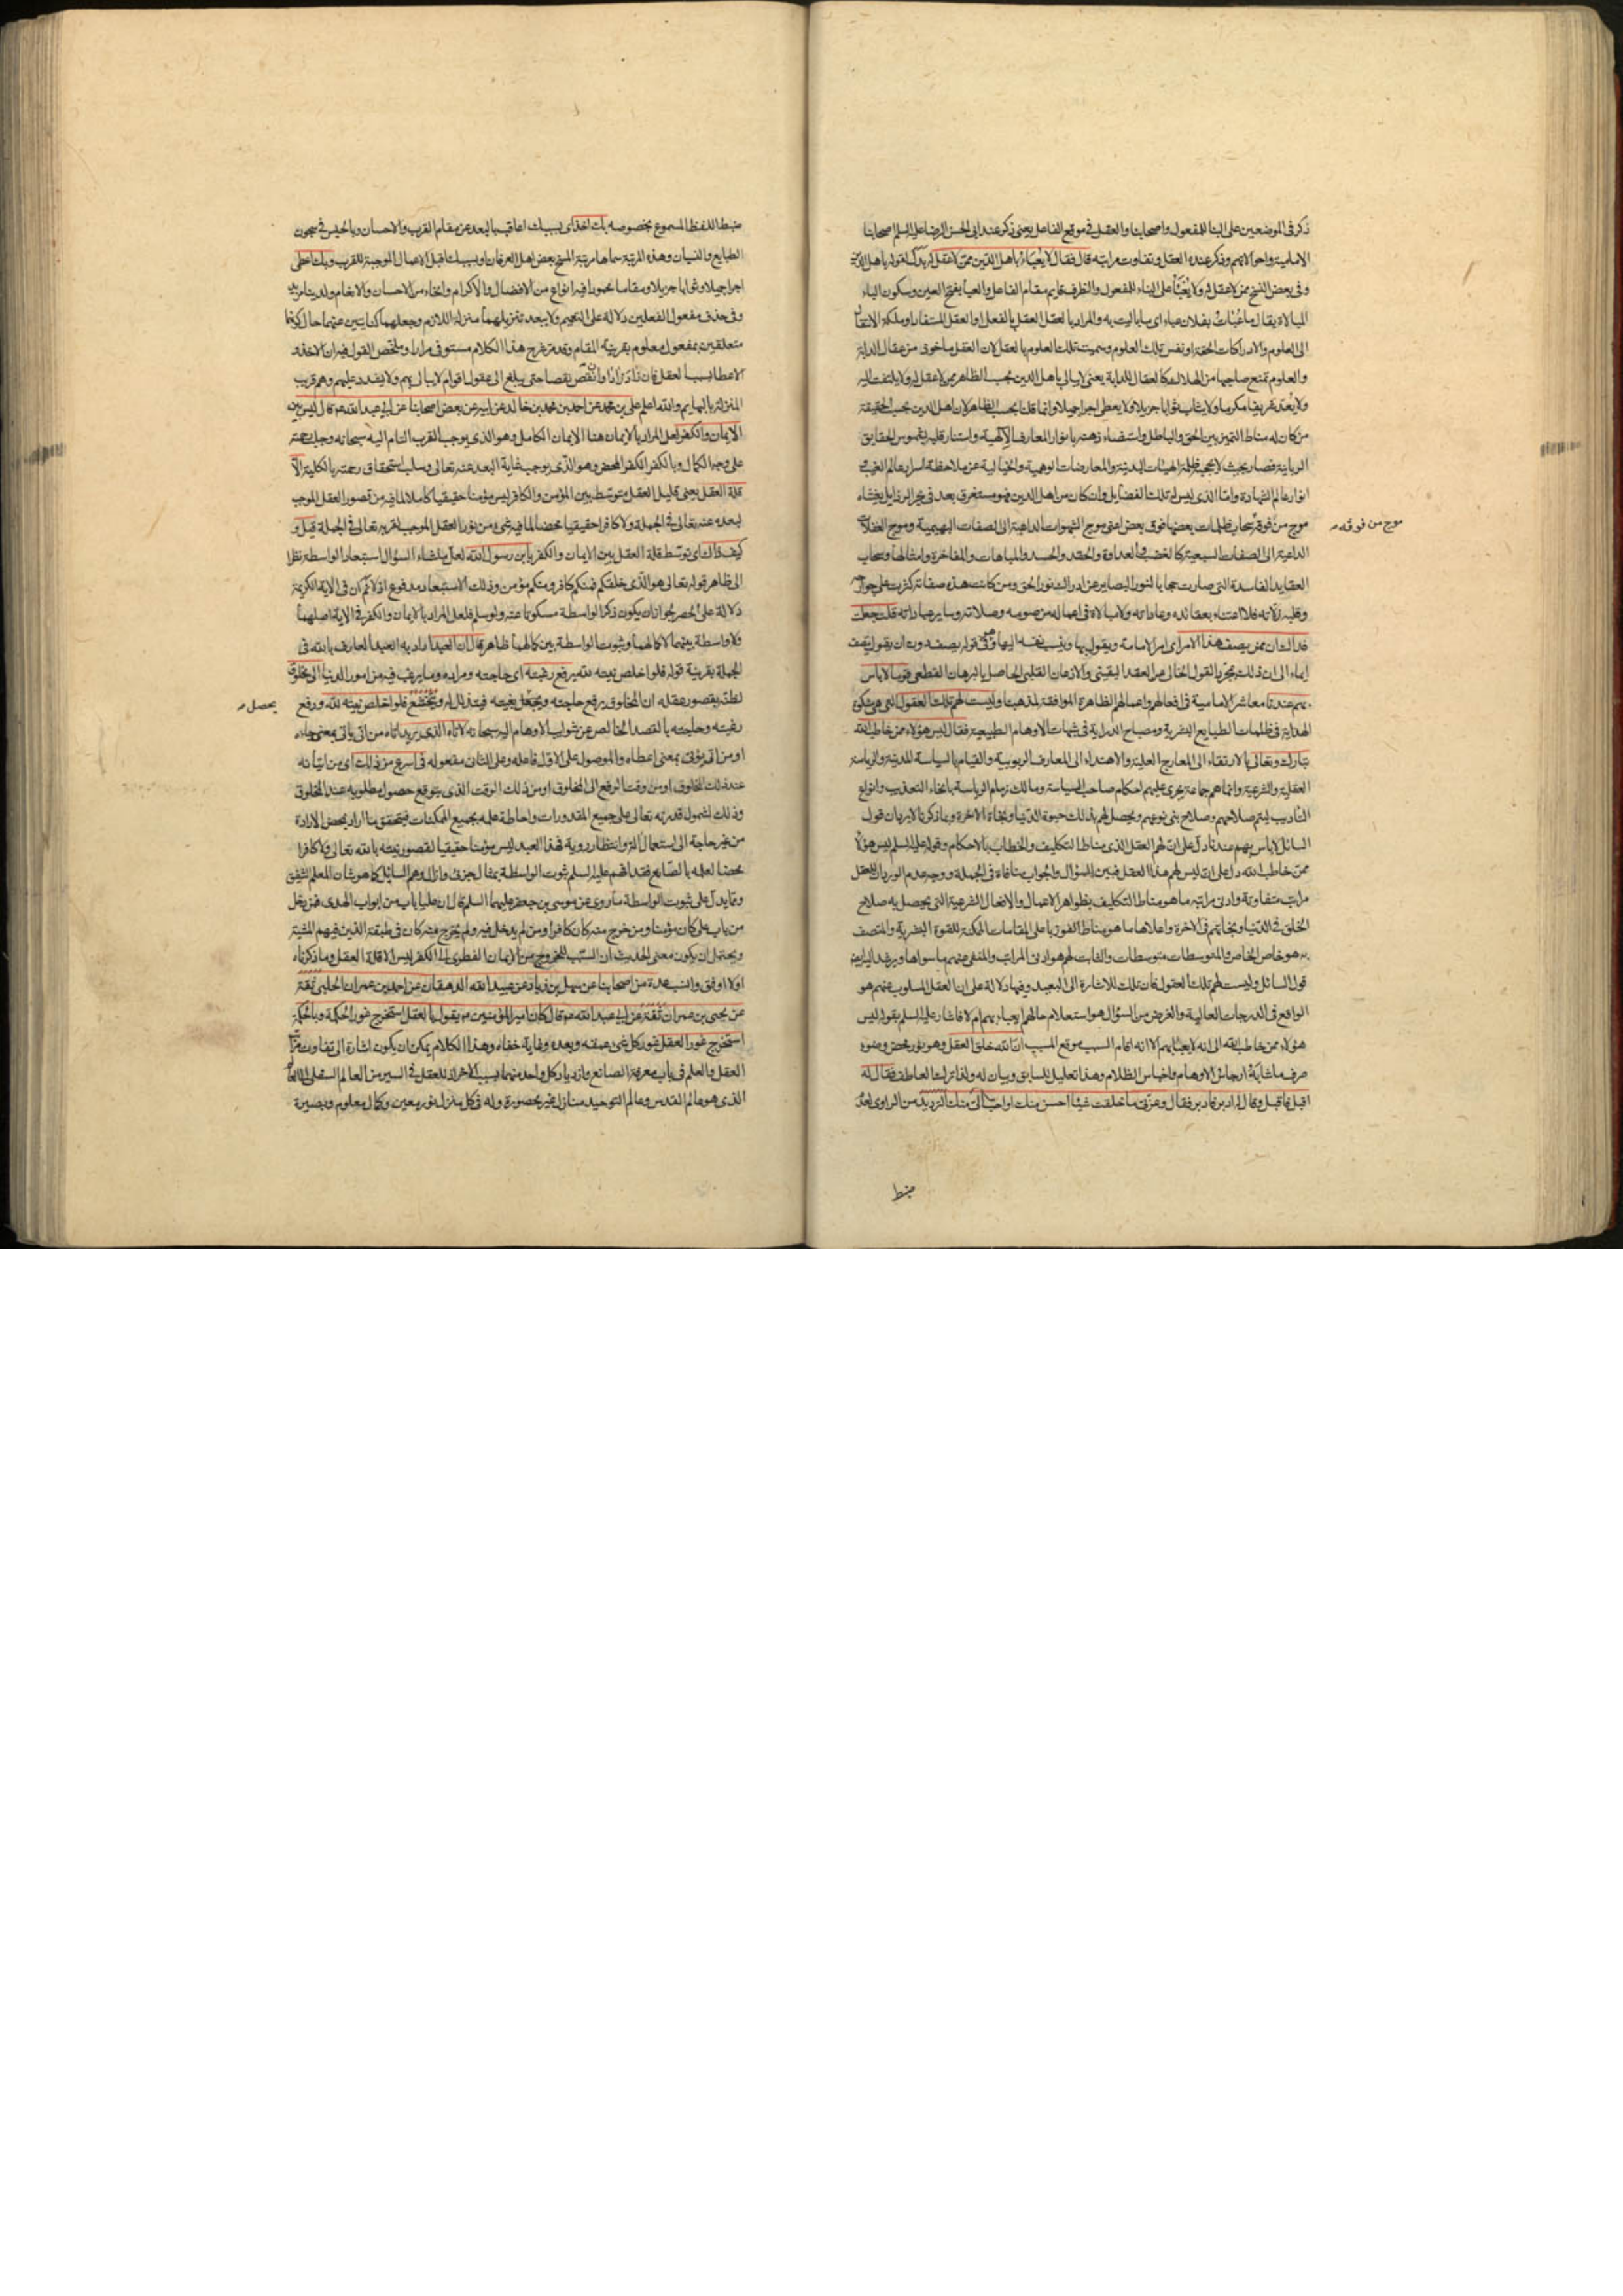 ذكر فى الموضعين على البنا للمفعول واصحابنا والعقل فى موقع الفاعل يعنى ذكر عند ابى الحسن الرضا عليه السلم اصحابنا
الامامية واحوالاتهم وذكر عنده العقل وتفاوت مراتبه قال فقال لا يعباء باهل الدين ممن لا عقل له
وفى بعض النسخ ممن لا عقل له ولا يعبأ على البناء للمفعول والظرف قايم مقام الفاعل والعبأ بفتح العين وسكون الباء
المبالاة يقال ما عبأت بفلان عباء اى ما باليت به والمراد بالعقل العقل بالفعل او العقل المستفاد او ملكة الانتقال
الى العلوم والادراكات الحقة او نفس تلك العلوم وسميت تلك العلوم بالعقل لان العقل ماخوذ من عقال الدابة
والعلوم تمنع صاحبها من الهلاك كالعقال للدابة يعنى لا يبالى باهل الدين بحسب الظاهر ممن لا عقل له ولا يلتفت اليه
ولا يعد شريفا مكرما ولا يثاب ثوابا جزيلا ولا يعطى اجرا جميلا وانما قلنا بحسب الظاهر لان اهل الدين بحسب الحقيقة
من كان له مناط التميز بين الحق والباطل واستضاء ذهنه بانوار المعارف الالهية واستنار قلبه بشموس الحقايق
الربانية فصار بحيث لا يحجبه ظلمة الهيئات البدنية والمعارضات الوهمية والخيالية عن ملاحظة اسرار عالم الغيب
انوار عالم الشهادة واما الذى ليس له تلك الفضايل وان كان من اهل الدين فهو مستغرق بعد فى بحر الرذايل يغشاه
موج من فوقه سحاب ظلمات بعضها فوق بعض اعنى موج الشهوات الداعية الى الصفات البهيمية وموج الغفلات
موج من فوقه
الداعية الى الصفات السبعية كالغضب والعداوة والحقد والحسد والمباهات والمفاخرة وامثالها وسحاب
العقايد الفاسدة التى صارت حجابا لنور البصاير عن ادراك نور الحق ومن كانت هذه صفاته كثرت على جوارحه
وقلبه زلاته فلا اعتناء بعقائده وعاداته ولا مبالاة فى اعماله من صومه وصلاته وساير عباداته قلت جعلت
فداك ان ممن يصف هذا الامر اى امر الامامة ويقول بها وينسب نفسه اليها وفى قوله يصف دون ان يقول يتصف
ايماء الى ان ذلك بمجرد القول الخالى عن العقد اليقينى والاذعان القلبى الحاصل بالبرهان القطعى قوما لا باس
بهم عندنا معاشر الامامية فى افعالهم واعمالهم الظاهرة الموافقة لمذهبنا وليست لهم تلك العقول التى هى مشكوة
الهداية فى ظلمات الطبايع البشرية ومصباح الدراية فى شبهات الاوهام الطبيعية فقال ليس هؤلاء ممن خاطب الله
تبارك وتعالى بالارتقاء الى المعارج العلية والاهتداء الى المعارف الربوبية والقيام بالسياسة المدنية والرياسة
العقلية والشرعية وانما هم جماعة يجرى عليهم احكام صاحب السياسة ومالك زمام الرياسة بانحاء التعذيب وانواع
التاديب ليتم صلاحهم وصلاح بنى نوعهم ويحصل لهم بذلك حيوة الدنيا ونجاة الاخرة وبما ذكرنا لا يرد ان قول
السائل لا باس بهم عندنا دل على ان لهم العقل الذى مناط التكليف والخطاب بالاحكام وقوله عليه السلم ليس هؤلاء
ممن خاطب الله دل على انه ليس لهم هذا العقل فبين السؤال والجواب منافاة فى الجملة ووجه عدم الورود ان للعقل
مراتب متفاوتة وادنى مراتبه ما هو مناط التكليف بظواهر الاعمال والافعال الشرعية التى يحصل به صلاح
الخلق فى الدنيا ونجاتهم فى الاخرة واعلاها ما هو مناط الفوز باعلى المقامات الممكنة للقوة البشرية والمتصف
به هو خاص الخاص والمتوسطات متوسطات والثابت لهم هو ادنى المراتب والمنفى عنهم ما سواها ويرشد اليه
قول السائل وليست لهم تلك العقول فان تلك للاشارة الى البعيد وفيها دلالة على ان العقل المسلوب عنهم هو
الواقع فى الدرجات العالية والغرض من السؤال هو استعلام حالهم ايعباء بهم ام لا فاشار عليه السلم بقوله ليس
هؤلاء ممن خاطب الله الى انه لا يعبأ بهم الا انه اقام السبب موقع المسبب ان الله خلق العقل وهو نور محض وضوء
صرف ما شابهه ارجاس الاوهام واخباس الظلام وهذا تعليل للسابق وبيان له ولذا ترك العاطف فقال له
اقبل فاقبل وقال له ادبر فادبر فقال وعزتى ما خلقت شيئا احسن منك او احب الى منك الترديد من الراوى لعدم
ضبط
ضبط اللفظ المسموع بخصوصه بك اخذ اى بسببك اعاقب بالبعد عن مقام القرب والاحسان وبالحبس فى سجون
الطبايع والنسيان وهذه المرتبة سماها مرتبة المسخ بعض اهل العرفان او بسببك اقبل الاعمال الموجبة للقرب وبك اعطى
اجرا جميلا وثوابا جزيلا ومقاما محمودا فيه انواع من الافضال والاكرام وانحاء من الاحسان والانعام ولدينا مزيد
وفى حذف مفعول الفعلين دلالة على التعميم ولا يبعد تنزيلهما منزلة اللازم وجعلهما كنايتين عنهما حال كونهما
متعلقين بمفعول معلوم بقرينة المقام وقد مر شرح هذا الكلام مستوفى مرارا وملخص القول فيه ان الاخذ و
الاعطا بسبب العقل فان زاد زادا وان نقص نقصا حتى يبلغ الى عقول اقوام لا يبالى بهم ولا يشدد عليهم وهم قريب
المنزلة بالبهايم والله اعلم على بن محمد عن احمد بن محمد بن خالد عن ابيه عن بعض اصحابنا عن ابى عبد الله عم قال ليس بين
الايمان والكفر لعل المراد بالايمان هنا الايمان الكامل وهو الذى يوجب القرب التام اليه سبحانه وجلب رحمته
على وجه الكمال وبالكفر الكفر المحض وهو الذى يوجب غاية البعد عنه تعالى وسلب استحقاق رحمته بالكلية الا
قلة العقل يعنى قليل العقل متوسط بين المؤمن والكافر ليس مؤمنا حقيقيا كاملا لما فيه من قصور العقل الموجب
لبعده عنه تعالى فى الجملة ولا كافرا حقيقيا محضا لما فيه شىء من نور العقل الموجب لقربه تعالى فى الجملة قيل و
كيف ذاك اى توسط قلة العقل بين الايمان والكفر يا بن رسول الله لعل منشاء السؤال استبعاد الواسطة نظرا
الى ظاهر قوله تعالى هو الذى خلقكم فمنكم كافر ومنكم مؤمن وذلك الاستبعاد مدفوع اذ لا نم ان فى الاية الكريمة
دلالة على الحصر لجواز ان يكون ذكر الواسطة مسكوتا عنه ولو سلم فلعل المراد بالايمان والكفر فى الاية اصلهما
ولا واسطة بينهما لا كمالهما وثبوت الواسطة بين كمالهما ظاهر قال ان العبد اراد به العبد العارف بالله فى
الجملة بقرينة قوله فلو اخلص نيته لله يرفع رغبته اى حاجته ومراده وما يرغب فيه من امور الدنيا الى مخلوق
لظنه بقصور عقله ان المخلوق يرفع حاجته ويجعل بغيته فيتذلل له ويخشع فلو اخلص نيته لله ورفع
يحصل
رغبته وحاجته بالقصد الخالص عن شوايب الاوهام اليه سبحانه لاتاه الذى يريد اتاه من اتى ياتى بمعنى جاءه
او من اتى يؤتى بمعنى اعطاه والموصول على الاول فاعله وعلى الثانى مفعوله فى اسرع من ذلك اى من اتيانه
عند ذلك المخلوق او من وقت الرفع الى المخلوق او من ذلك الوقت الذى يتوقع حصول مطلوبه عند المخلوق
وذلك لشمول قدرته تعالى على جميع المقدورات واحاطة علمه بجميع الممكنات فيتحقق ما اراد بمحض الارادة
من غير حاجة الى استعمال الة وانتظار روية فهذا العبد ليس مؤمنا حقيقيا لقصور نيته بالله تعالى ولا كافرا
محضا لعلمه بالصانع فقد افهم عليه السلم ثبوت الواسطة بمثال جزئى وازال وهم السايل كما هو شان المعلم الشفيق
ومما يدل على ثبوت الواسطة ما روى عن موسى بن جعفر عليهما السلم قال ان عليا باب من ابواب الهدى فمن دخل
من باب على كان مؤمنا ومن خرج منه كان كافرا ومن لم يدخل فيه ولم يخرج منه كان فى طبقة الذين فيهم المشية
ويحتمل ان يكون معنى الحديث ان السبب للخروج من الايمان الفطرى الى الكفر ليس الا قلة العقل وما ذكرناه
اولا اوفق وانسب عدة من اصحابنا عن سهل بن زياد عن عبيد الله الدهقان عن احمد بن عمران الحلبى ثقة
عن يحيى بن عمران ثقة عن ابى عبد الله عم قال كان امير المؤمنين عم يقول بالعقل استخرج غور الحكمة وبالحكمة
استخرج غور العقل غور كل شىء عمقه وبعده وغاية خفاءه وهذا الكلام يمكن ان يكون اشارة الى تفاوت مراتب
العقل والعلم فى باب معرفة الصانع وازدياد كل واحد منهما بسبب الاخر اذ للعقل فى السير من العالم السفلى الى العالم
الذى هو عالم القدس وعالم التوحيد منازل غير محصورة وله فى كل منزل نور معين وكمال معلوم وبصيرة